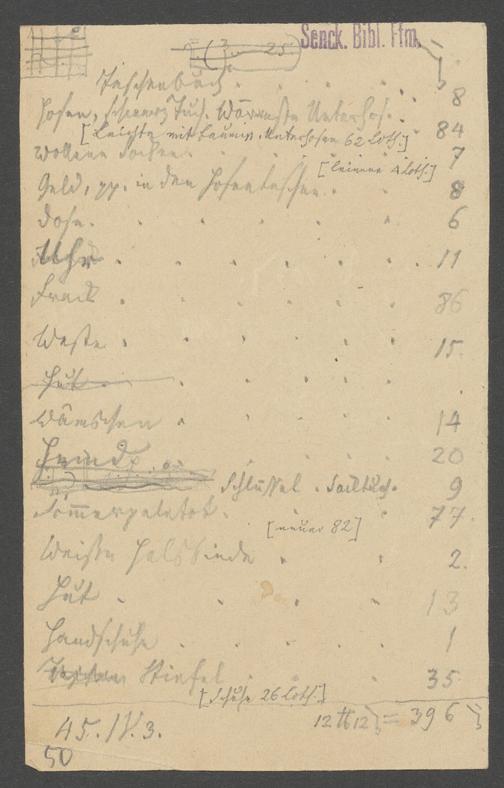 (3 25) Senck. Bibl. Ffm.
Taschenbuch . . . . 8
Hosen, schwarz Tuch. Wärmste Unterhos. 84
[Leichte mit baumw. Unterhosen 62 Loth.]
wollene Socken . . . 7
[leinene 4 Loth.]
Geld, pp. in den Hosentaschen . . 8
Dose . . . . . . 6
Uhr . . . . . . 11
Frack . . . . . . 86
Weste . . . . . . 15.
Hut
Wämschen . . . . . 14
Hemd . . . . . 20
Schlüssel . Sacktuch . 9
Sommerpaletot . . . 77.
[neuer 82]
Weiße Halsbinde . . 2.
Hut . . . . . 13
Handschuhe . . . . 1
Stiefel . . . . 35
[Schuhe 26 Loth.]
12 ℔ 12 = 396
45. IV. 3.
50